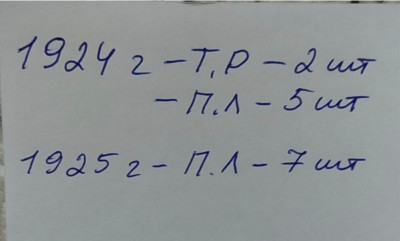 1924 г - Т.Р - 2 шт
- П.Л - 5 шт
1925 г - П.Л - 7 шт